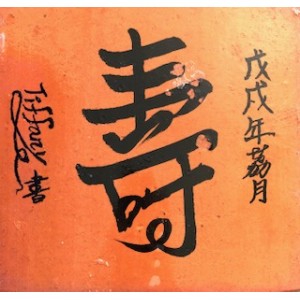 戊戌年荔月
寿
Tiffany
書